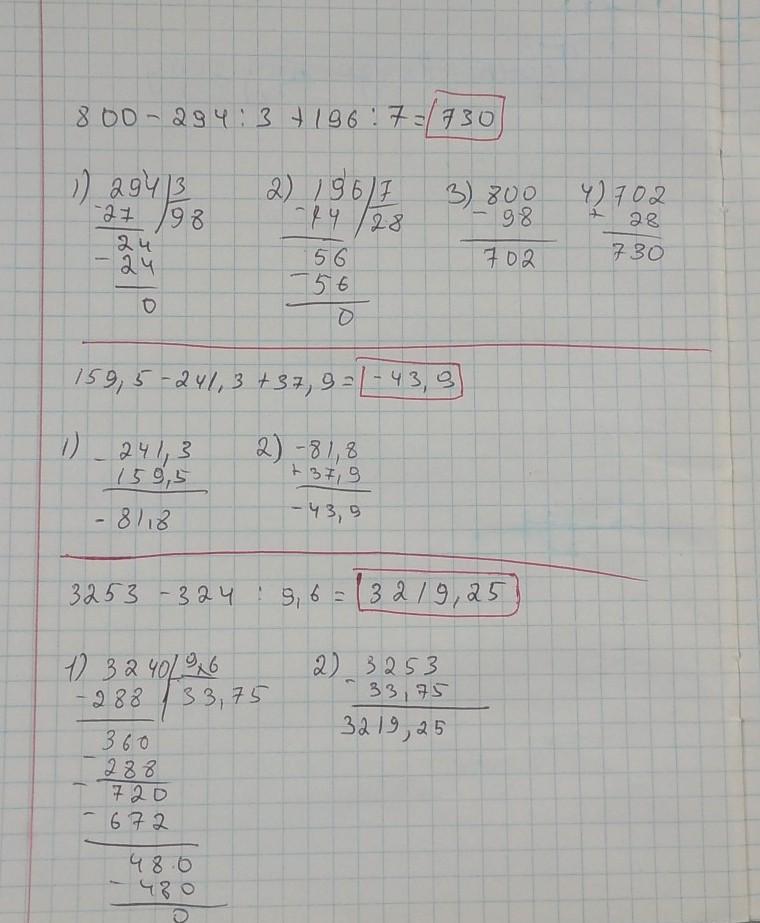 800 - 294 : 3 + 196 : 7 = 730
1) 294 | 3
- 27 | 98
24
- 24
0
2) 196 | 7
- 14 | 28
56
- 56
0
3) 800
- 98
702
4) 702
+ 28
730
159,5 - 241,3 + 37,9 = -43,9
1) - 241,3
159,5
- 81,8
2) -81,8
+ 37,9
-43,9
3253 - 324 : 9,6 = 3219,25
1) 3240 | 9,6
- 288 | 33,75
360
- 288
- 720
- 672
480
- 480
0
2) 3253
- 33,75
3219,25